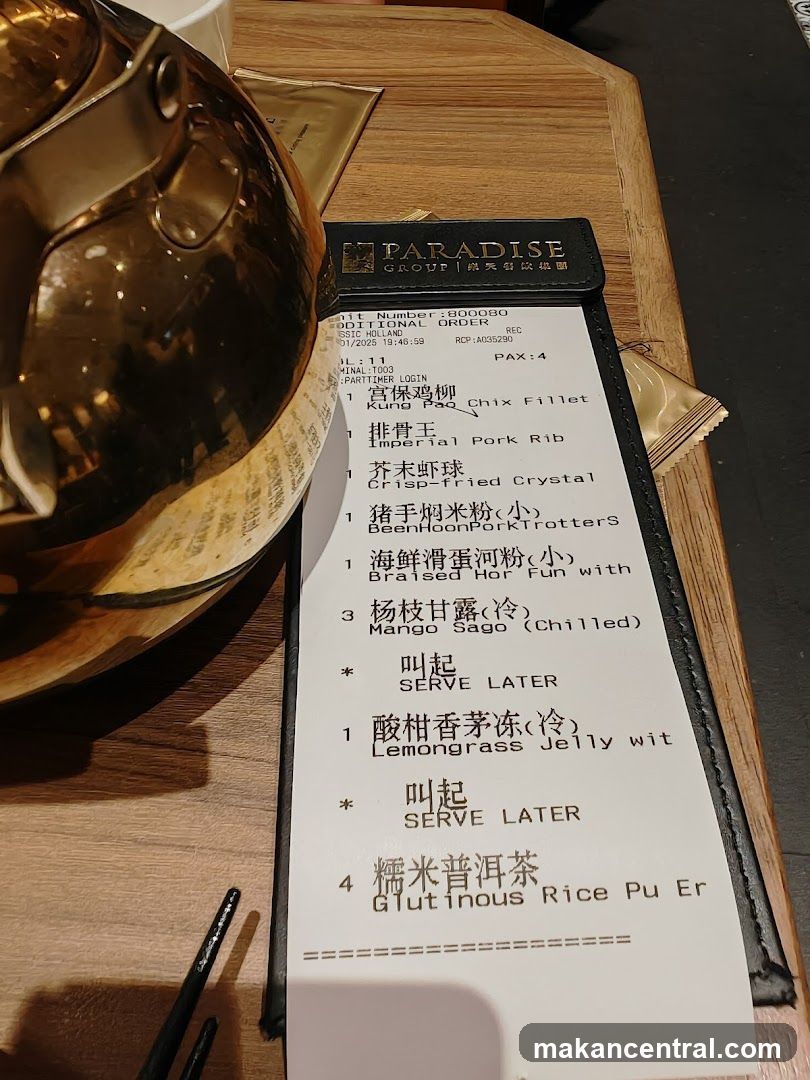 PARADISE
GROUP | 樂天餐飲集團
nit Number:800080
DDITIONAL ORDER
SSIC HOLLAND REC
01/2025 19:46:59 RCP:A035290
BL:11 PAX:4
MINAL:T003
:PARTTIMER LOGIN
1 宫保鸡柳
Kung Pao Chix Fillet
1 排骨王
Imperial Pork Rib
1 芥末虾球
Crisp-fried Crystal
1 猪手焖米粉(小)
BeenHoonPorkTrotterS
1 海鲜滑蛋河粉(小)
Braised Hor Fun with
3 杨枝甘露(冷)
Mango Sago (Chilled)
* 叫起
SERVE LATER
1 酸柑香茅冻(冷)
Lemongrass Jelly wit
* 叫起
SERVE LATER
4 糯米普洱茶
Glutinous Rice Pu Er
====================
makancentral.com